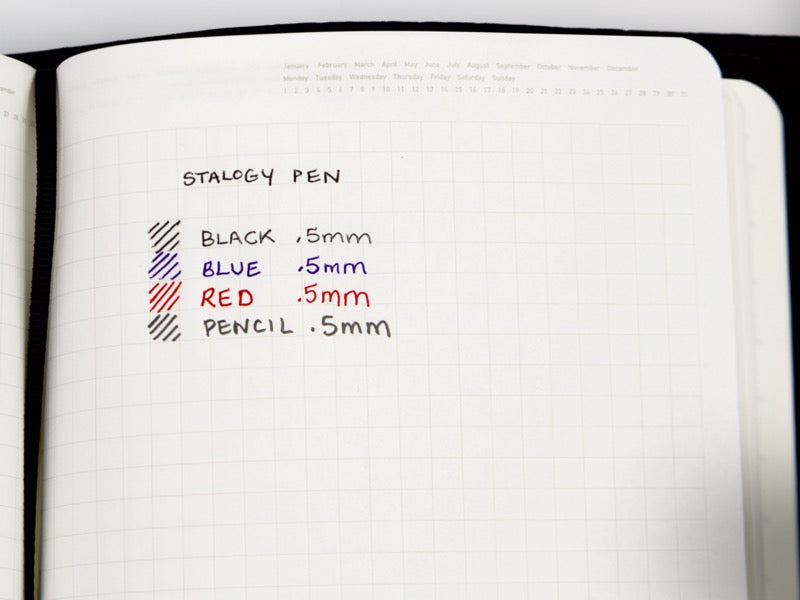 January February March April May June July August September October November December
Monday Tuesday Wednesday Thursday Friday Saturday Sunday
1 2 3 4 5 6 7 8 9 10 11 12 13 14 15 16 17 18 19 20 21 22 23 24 25 26 27 28 29 30 31
STALOGY PEN
BLACK .5mm
BLUE .5mm
RED .5mm
PENCIL .5mm